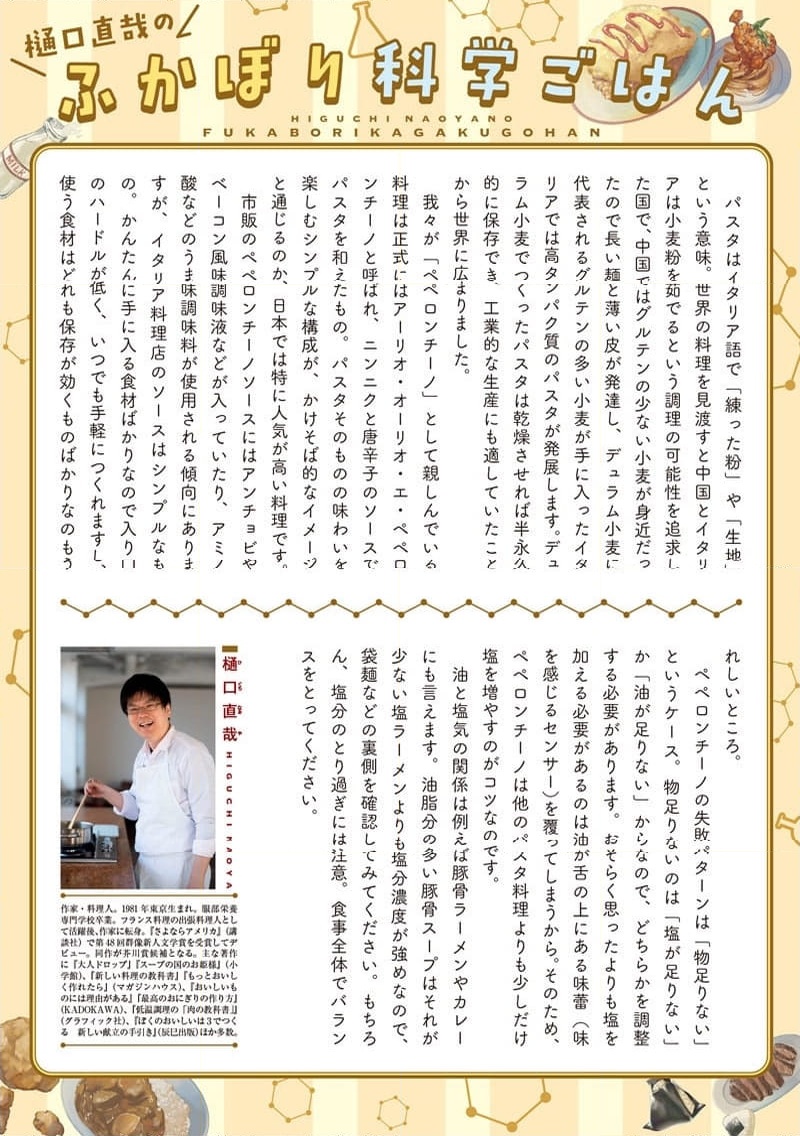 樋口直哉の
ふかぼり科学ごはん
HIGUCHI NAOYANO
FUKABORIKAGAKUGOHAN
MILK
パスタはイタリア語で「練った粉」や「生地」
という意味。世界の料理を見渡すと中国とイタリ
アは小麦粉を茹でるという調理の可能性を追求し
た国で、中国ではグルテンの少ない小麦が身近だっ
たので長い麺と薄い皮が発達し、デュラム小麦に
代表されるグルテンの多い小麦が手に入ったイタ
リアでは高タンパク質のパスタが発展します。デュ
ラム小麦でつくったパスタは乾燥させれば半永久
的に保存でき、工業的な生産にも適していたこと
から世界に広まりました。
我々が「ペペロンチーノ」として親しんでいる
料理は正式にはアーリオ・オーリオ・エ・ペペロ
ンチーノと呼ばれ、ニンニクと唐辛子のソースで
パスタを和えたもの。パスタそのものの味わいを
楽しむシンプルな構成が、かけそば的なイメージ
と通じるのか、日本では特に人気が高い料理です。
市販のペペロンチーノソースにはアンチョビや
ベーコン風味調味液などが入っていたり、アミノ
酸などのうま味調味料が使用される傾向にありま
すが、イタリア料理店のソースはシンプルなも
の。かんたんに手に入る食材ばかりなので入り口
のハードルが低く、いつでも手軽につくれますし、
使う食材はどれも保存が効くものばかりなのもう
れしいところ。
ペペロンチーノの失敗パターンは「物足りない」
というケース。物足りないのは「塩が足りない」
か「油が足りない」からなので、どちらかを調整
する必要があります。おそらく思ったよりも塩を
加える必要があるのは油が舌の上にある味蕾（味
を感じるセンサー）を覆ってしまうから。そのため、
ペペロンチーノは他のパスタ料理よりも少しだけ
塩を増やすのがコツなのです。
油と塩気の関係は例えば豚骨ラーメンやカレー
にも言えます。油脂分の多い豚骨スープはそれが
少ない塩ラーメンよりも塩分濃度が強めなので、
袋麺などの裏側を確認してみてください。もちろ
ん、塩分のとり過ぎには注意。食事全体でバラン
スをとってください。
樋口直哉
ひぐちなおや
HIGUCHI NAOYA
作家・料理人。1981年東京生まれ。服部栄養
専門学校卒業。フランス料理の出張料理人とし
て活躍後、作家に転身。『さよならアメリカ』（講
談社）で第48回群像新人文学賞を受賞してデ
ビュー。同作が芥川賞候補となる。主な著作
に『大人ドロップ』『スープの国のお姫様』（小
学館）、『新しい料理の教科書』『もっとおいし
く作れたら』（マガジンハウス）、『おいしいも
のには理由がある』『最高のおにぎりの作り方』
（KADOKAWA）、『低温調理の「肉の教科書」』
（グラフィック社）、『ぼくのおいしいは3でつく
る　新しい献立の手引き』（辰巳出版）ほか多数。